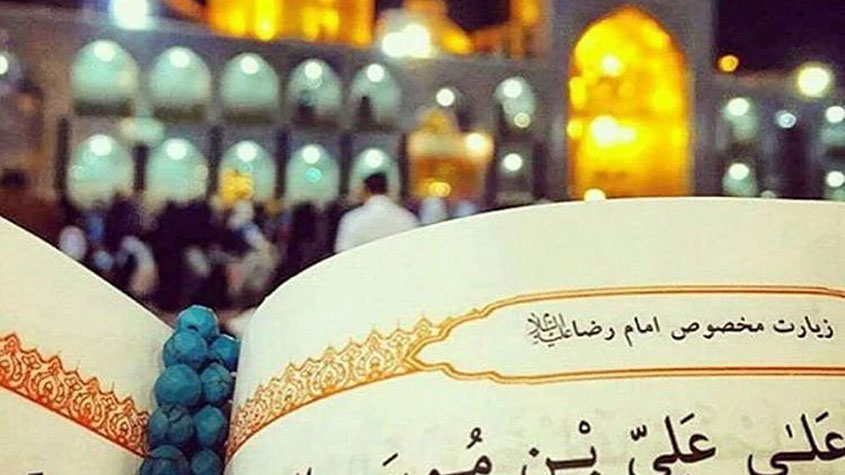 زیارت مخصوص امام رضا علیه‌السلام
عَلیٰ عَلِيِّ بْنِ مُوسَى